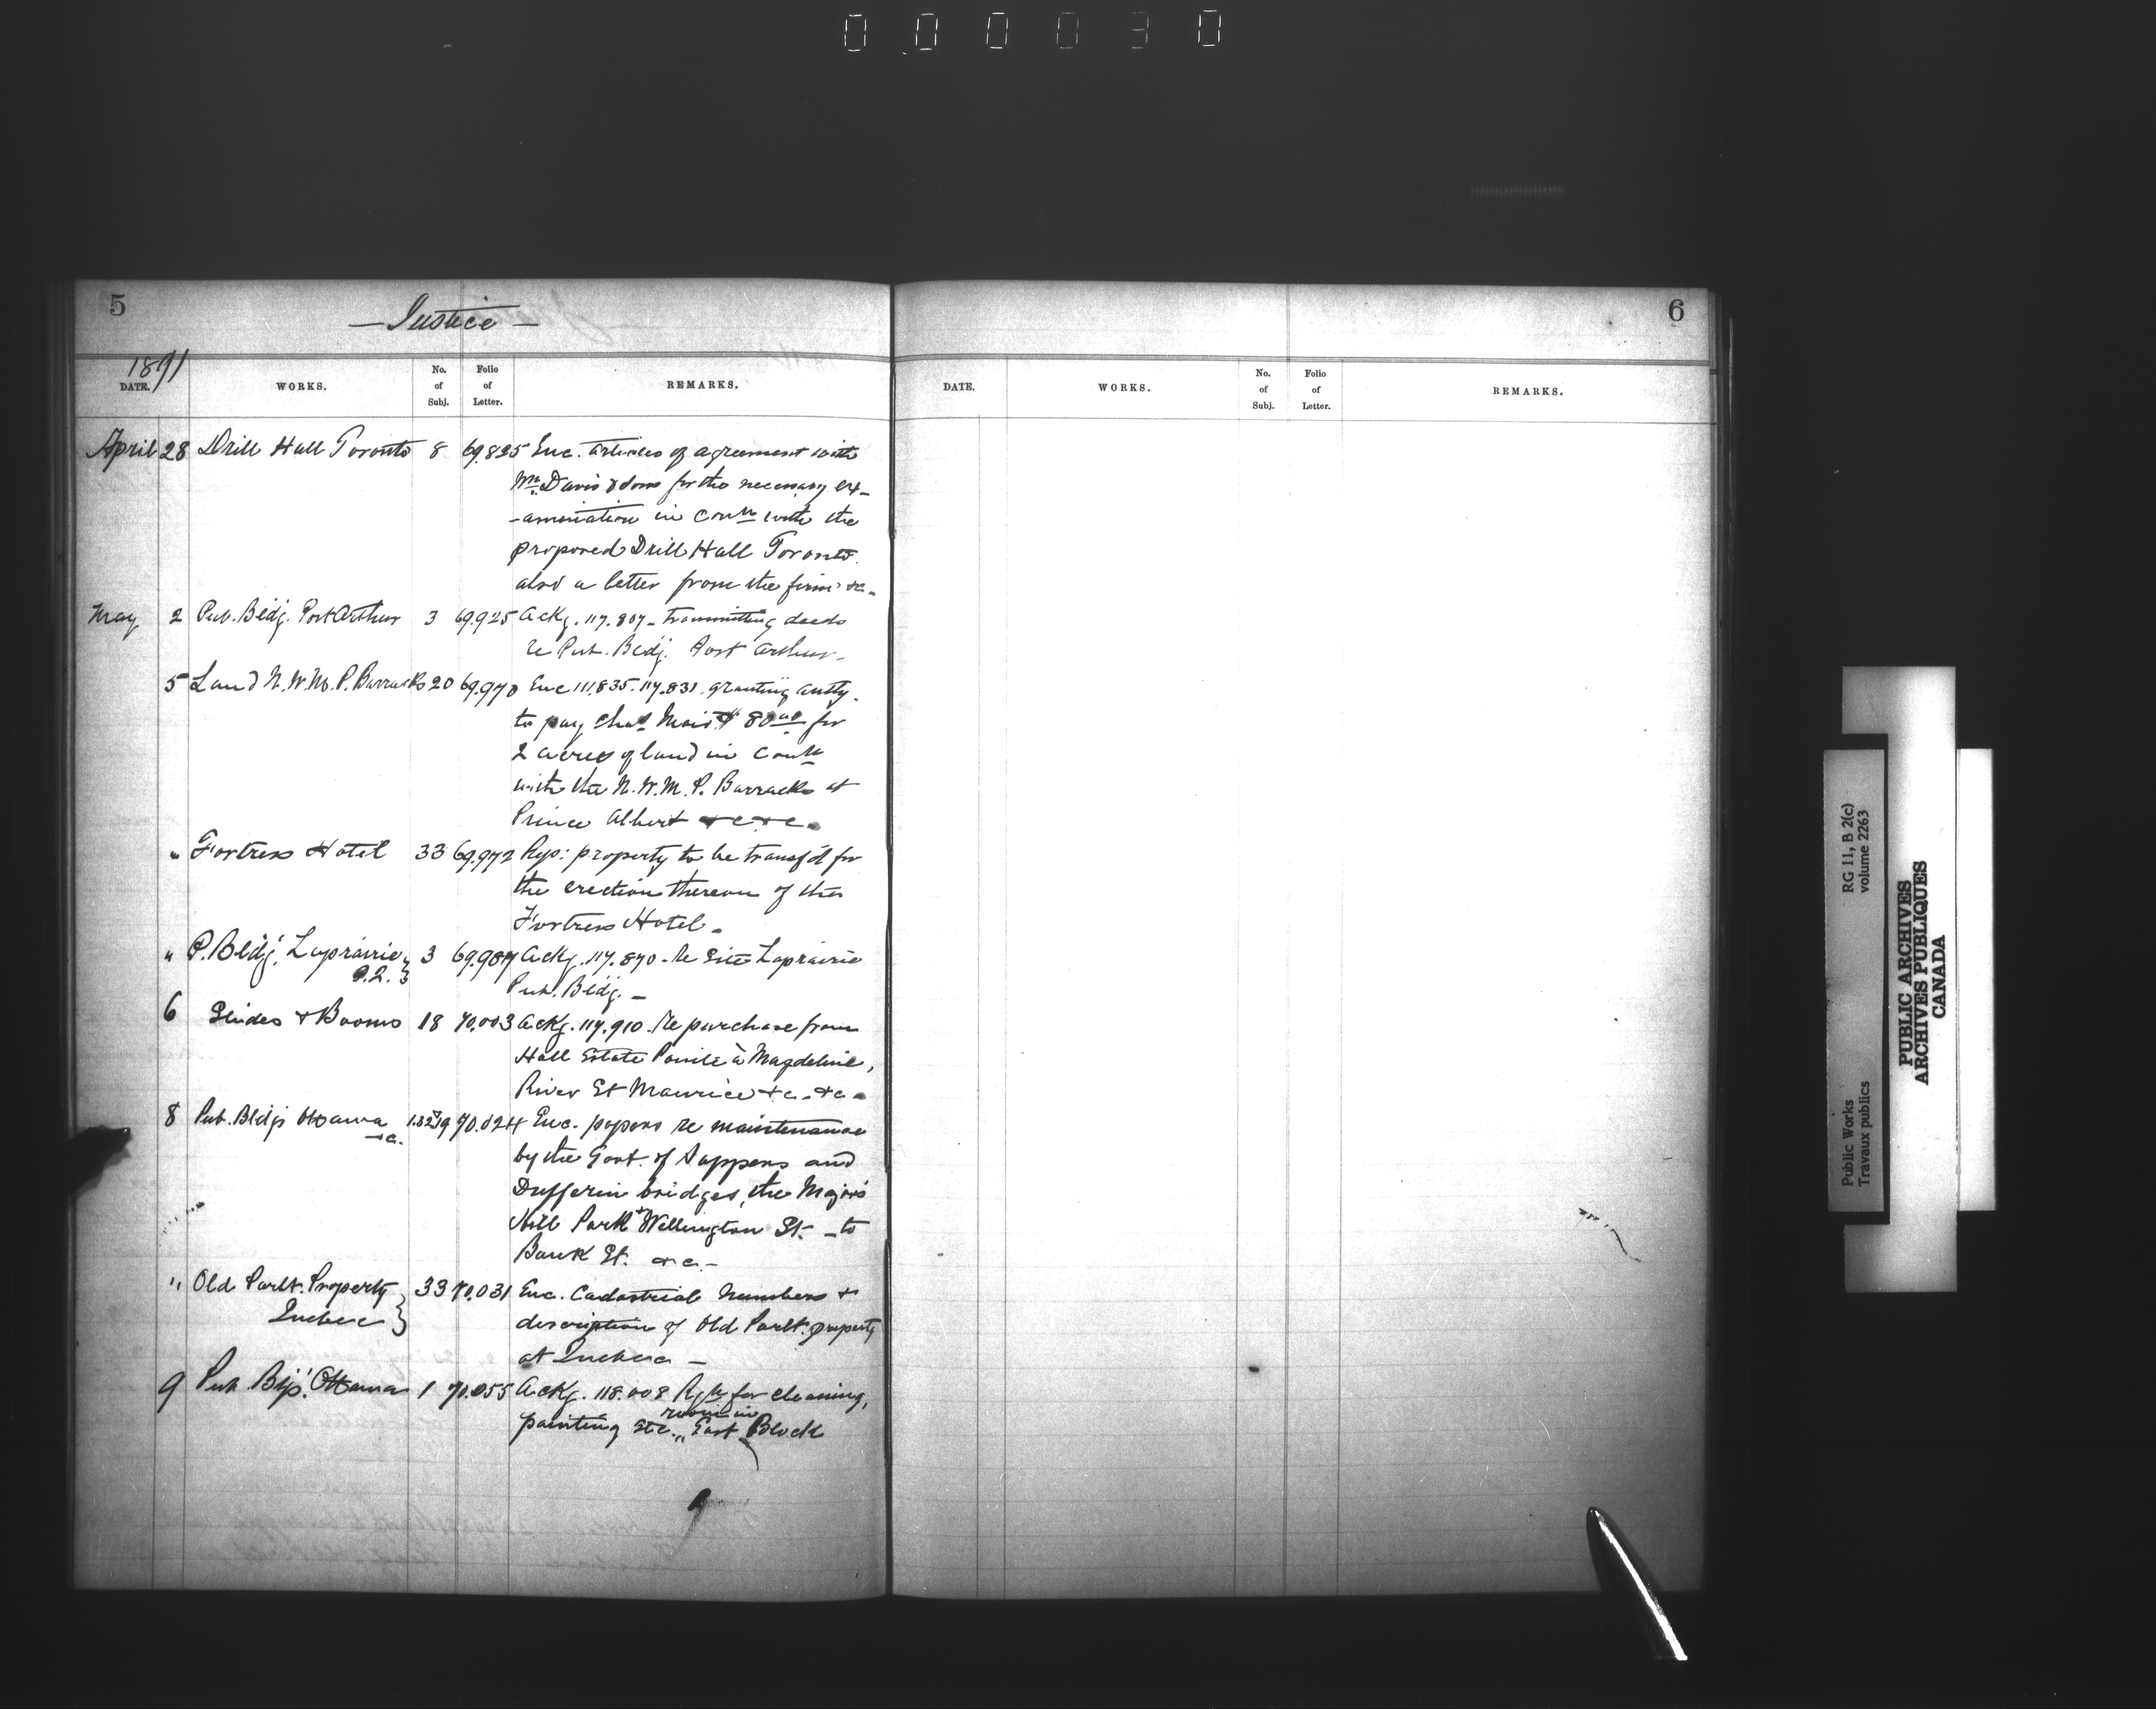 000030
5
— Justice —
1891
DATE. WORKS. No. of Subj. Folio of Letter. REMARKS.
April 28 Drill Hall Toronto 8 69.825 Enc. articles of agreement with
Mr. Davis & Sons for the necessary ex-
-amination in Conn with the
proposed Drill Hall Toronto.
also a letter from the firm &c.
May 2 Pub. Bldg. Port Arthur 3 69.925 Ackg. 117.807 - transmitting deeds
re Pub. Bldg. Port Arthur -
5 Land N.W.M.P. Barracks 20 69.970 Enc 111.835. 117.831. granting authy.
to pay Chas Mair $80 00 for
2 acres of land in Conn
with the N.W.M.P. Barracks at
Prince Albert &c &c.
" Fortress Hotel 33 69.972 Rep: property to be transf'd for
the erection thereon of the
Fortress Hotel.
" P. Bldg. Laprairie 3 69.987 Ackg. 117.870 - Re Site Laprairie
P.Q. Pub. Bldg. —
6 Slides & Booms 18 70.003 Ackg. 117.910. Re purchase from
Hall Estate Pointe à Magdeline,
River St Maurice &c. &c.
8 Pub. Bldgs Ottawa 70.024 Enc. papers re maintenance
&c. by the Govt. of Sappers and
Dufferin bridges, the Major's
Hill Park & Wellington St. — to
Bank St. &c. —
" Old Parlt. Property 33 70.031 Enc. Cadastrial Numbers &
Quebec description of Old Parlt. property
at Quebec —
9 Pub. Bgs. Ottawa 1 70.055 Ackg. 118.008 for cleaning,
painting etc. room in East Block
6
DATE. WORKS. No. of Subj. Folio of Letter. REMARKS.
Public Works
Travaux publics
RG 11, B 2(c)
volume 2263
PUBLIC ARCHIVES
ARCHIVES PUBLIQUES
CANADA